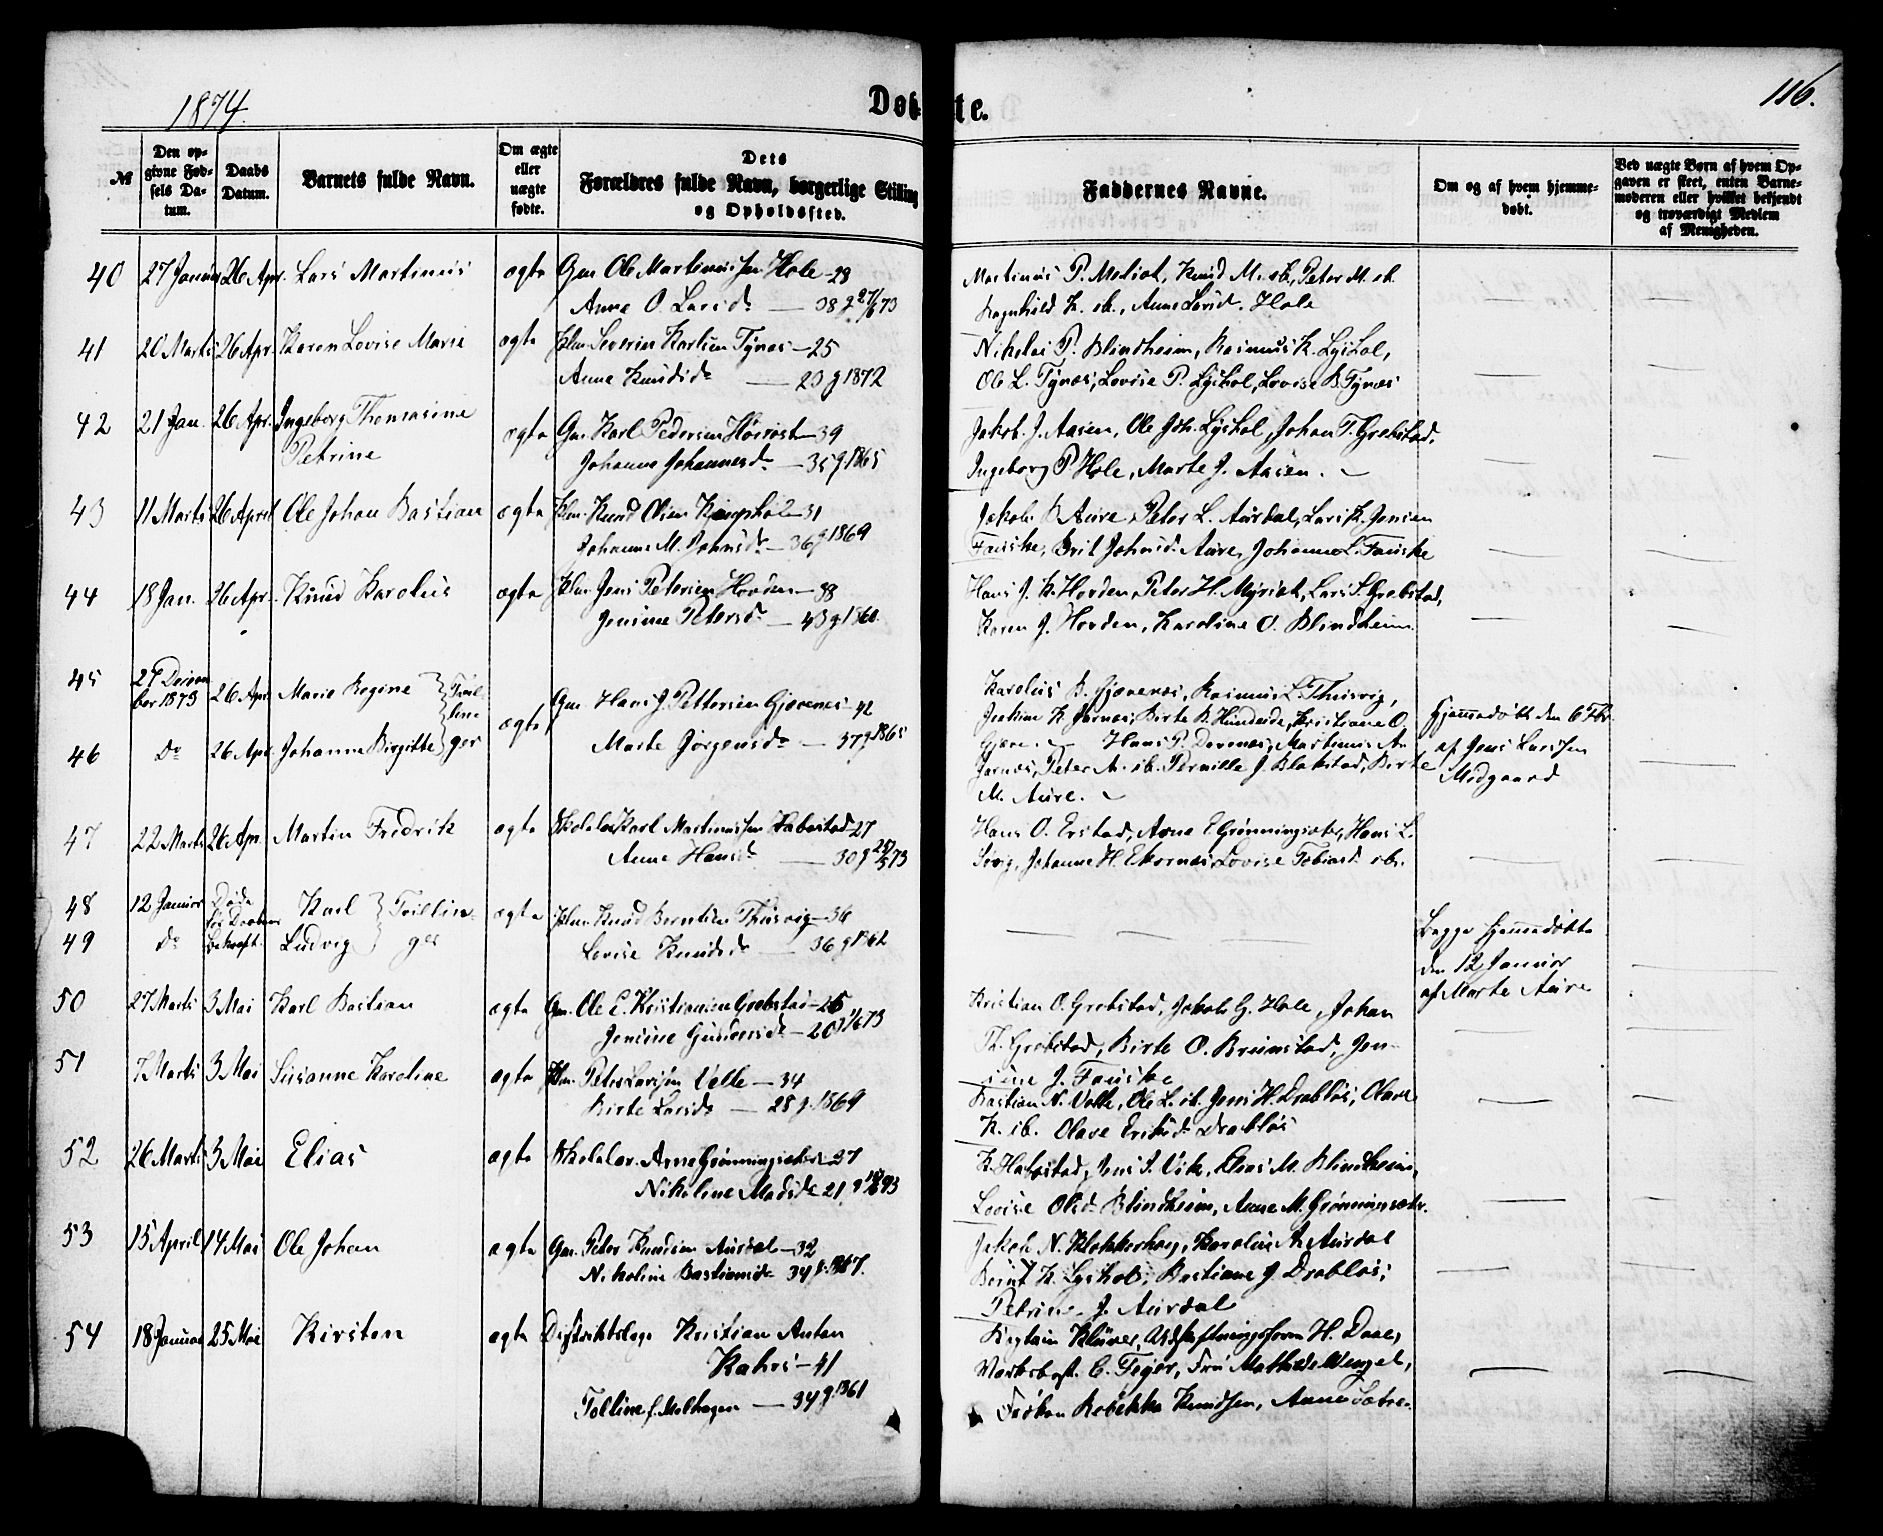 1874.
Døbte.
116.
№
Den opgivne Fødsels Datum.
Daabs Datum.
Barnets fulde Navn.
Om ægte eller uægte fødte.
Dets Forældres fulde Navn, borgerlige Stilling og Opholdssted.
Faddernes Navne.
Om og af hvem hjemmedøbt.
Ved uægte Børn af hvem Opgaven er skeet, enten Barnemoderen eller hvilket bekjendt og troværdigt Medlem af Menigheden.
40 27 Januar 26 Apr. Lars Martinus ægte Gm. Ole Martinussen Hole - 28
Anne O. Larsdr — 38 g 27/6 73
Martinus P. Melset, Knud M. sb., Peter M. sb.
Ragnhild K. sb., Anne Larsd. Hole
41 20 Marts 26 Apr. Karen Lovise Marie ægte Severin Karlsen Tynes - 25
Anne Knudsdr — 23 g 1872
Nikolai P. Blindheim, Rasmus K. Lyshol,
Ole L. Tynes, Lovise P. Lyshol, Lovise B. Tynes
42 21 Jan. 26 Apr. Ingeborg Thomasine ægte Gm. Karl Pedersen - 39
Petrine
Johanne Johannesdr — 35 g 1865
Jakob J. Aasen, Ole Joh. Lyshol, Johan T. Grebstad,
Ingeborg P. Hole, Marte J. Aasen.
43 11 Marts 26 April Ole Johan Bastian ægte Knud Olsen - 31
Johanne M. Johnsdr — 36 g 1869
Jakob B. Aure, Peter L. Aursdal, Lars K. Jensen
Fauske, Brit Johnsd. Aure, Johanne L. Fauske
44 18 Jan. 26 Apr. Knud Karolus ægte Jens Petersen Hovden - 38
Jensine Petersdr — 43 g 1860.
Hans J. K. Hovden, Peter H. Myrset, Lars S. Grebstad,
Karen J. Hovden, Karoline O. Blindheim.
45 27 December 1873 26 Apr. Marie Regine Tvillinger
46 Do 26 Apr. Johanne Birgitte
ægte Gm. Hans J. Pettersen Gjævenes - 42
Marte Jørgensdr — 37 g 1865
Karolus B. Gjævenes, Rasmus L. Thusvig,
Joakim K. Jarnes, Birte B. Hundeide, Kristiane O.
Gjære. Hans P. Devenes, Martinus A.
Jarnes, Peter A. sb. Pernille J. Blakstad, Birte
M. Aure.
Hjemmedøbte den 6 Fbr.
af Jens Larssen
Medgaard
47 22 Marts 26 Apr. Martin Fredrik ægte Skolelær Karl Martinussen Habostad 27
Anne Hansdr — 30 g 25/5 73
Hans O. Erstad, Arne E. Grønningsæter, Hans L.
Søvig, Johanne H. Ekornes, Lovise Tobiasd. sb.
48 12 Januar Døde Karl Tvillinger ægte Knud Berntsen Thusvig - 36
49 Do Ludvig
Lovise Knudsdr — 36 g 1862
Begge hjemmedøbte
den 12 Januar
af Marte Aure
50 27 Marts 3 Mai Karl Bastian ægte Gm. Ole E. Kristiansen Grebstad - 26
Jensine Gundersdr — 20
Kristian O. Grebstad, Jakob G. Hole, Johan
Th. Grebstad, Birte O. Brunstad, Jensine J. Fauske
51 7 Marts 3 Mai Susanne Karoline ægte Peter Larssen Velle — 34
Birte Larsdr — 28 g. 1869
Bastian N. Velle, Ole L. sb. Jens H. Drabløs, Olave
K. sb. Olave Eriksd. Drabløs
52 26 Marts 3 Mai Elias ægte Skolelær. Arne Grønningsæter - 27
Nikoline Madsdr 21
K. Habostad, Jens S. Vik, Elias M. Blindheim,
Lovise Olsdr Blindheim, Anne M. Grønningsæter.
53 15 April 14 Mai Ole Johan ægte Gm. Peter Knudsen Aursdal - 32
Nikoline Bastiansdr 34 g. 1867.
Jakob N. Klokkerhaug, Karolus A. Aursdal
Bernt K. Lyshol, Bastiane J. Drabløs,
Petrine J. Aursdal
54 18 Januar 25 Mai Kirsten ægte Distriktslæge Kristian Anton
Kahrs - 41
Tolline f. Molhagen — 34 g 1861
Kaptain Klüver, H. Daae,
C. Feger, Fru Mathilde Wenzel,
Frøken Rebekka Knudsen, Anne Sætre.